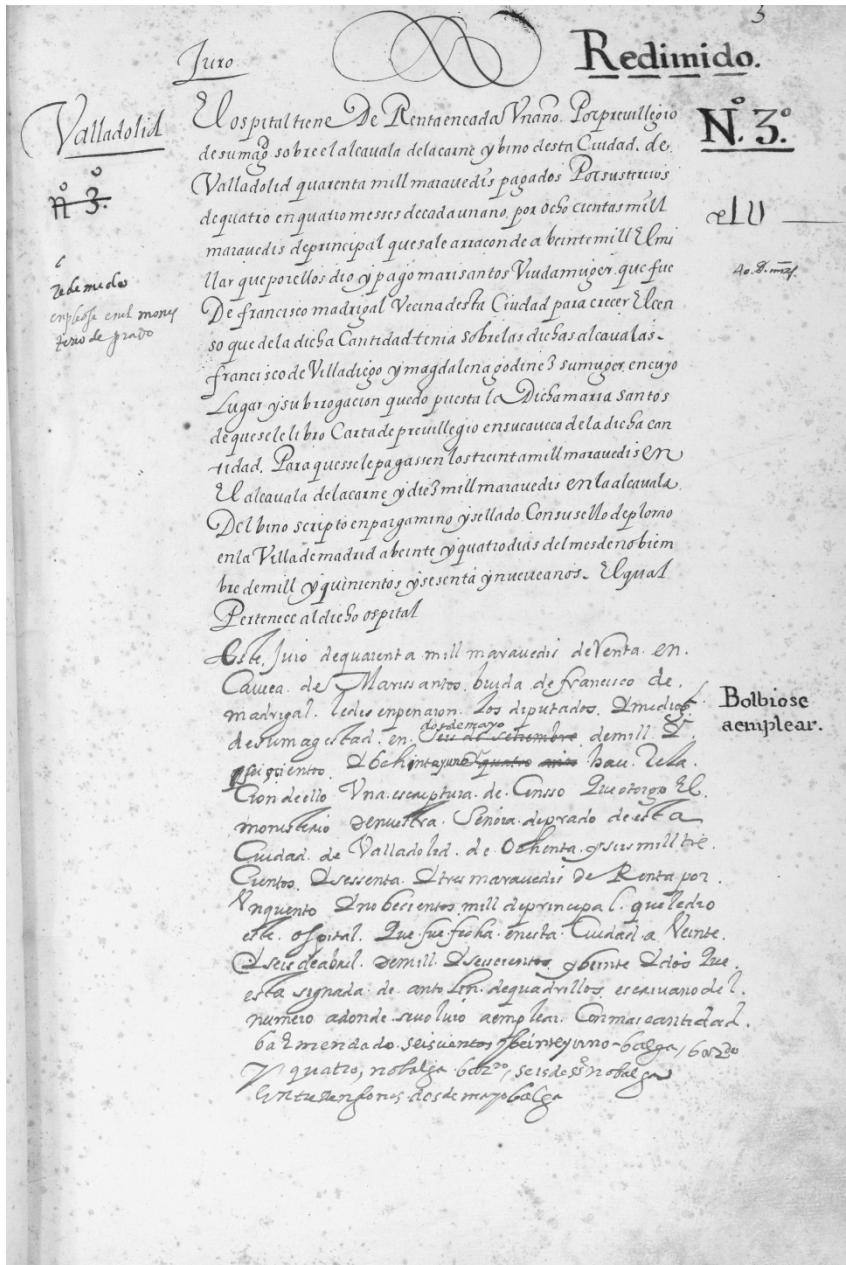 3
Juro
Redimido.
Valladolid
Nº 3º
nº 3º
redemido
enpleose en el mones
terio de prado
El ospital tiene De Renta en cada Un año. Por previllegio
de su magd sobre el alcavala de la carne y bino desta Ciudad. de
Valladolid quarenta mill maravedis pagados Por sus tercios
de quatro en quatro messes de cada un ano, por ocho cientas mill
maravedis de principal que sale a rracon de a beinte mill El mi
llar que por ellos dio y pago mari santos Viuda muger. que fue
De francisco madrigal Vecina desta Ciudad para crecer El cen
so que de la dicha Cantidad tenia sobre las dichas alcavalas.
francisco de Villadiego y magdalena godinez su muger. en cuyo
Lugar y subrrogacion quedo puesta la Dicha maria santos
de que se le libro Carta de previllegio en su caveca de la dicha can
tidad. Para que sse le pagassen los treinta mill maravedis en
El alcavala de la carne y diez mill maravedis en la alcavala
Del bino scripto en pargamino y sellado Con su sello de plomo
en la Villa de madrid a beinte y quatro dias del mes de nobiem
bre de mill y quinientos y sesenta y nueve anos. El qual
Pertenece al dicho ospital
40 U mrs.
Este Juro de quarenta mill maravedis de Renta en
Caveca de Mari santos, biuda de francisco de
madrigal. le desenpenaron los diputados. & medios
de su magestad. en dos de mayo seis de setiembre de mill &
hay Rela
Cion de ello Una escriptura de Censso Que otorgo El
monesterio de nuestra Senora de prado de esta
Ciudad de Valladolid. de Ochenta y seis mill tre
Cientos & sessenta & tres maravedis de Renta por
Un quento & nobecientos mill de principal. que le dio
este ospital. Que fue fecha en esta Ciudad a Veinte
& seis de abril de mill & seiscientos y beinte & dos Que
esta signada de antolin de quadrillos escrivano del
numero a donde se volvio a emplear. Con mas cantidad
ba Emendado seiscientos y beinte y uno balga, borrdo
y quatro, no balga borrdo, seis de se no balga
Entre renglones dos de mayo balga
Bolbiose
a emplear.